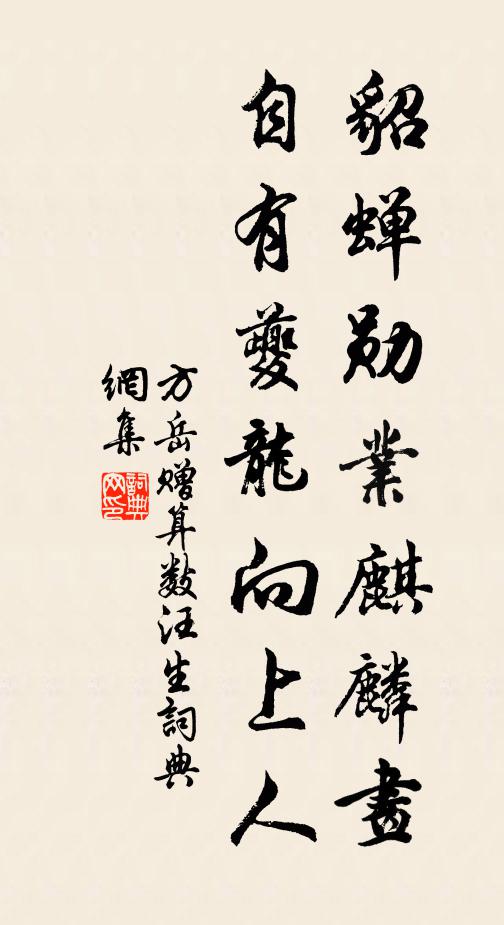 貂蝉勋業麒麟畫
自有夔龍向上人
方岳赠算数汪生詞典
網集
詞典网印